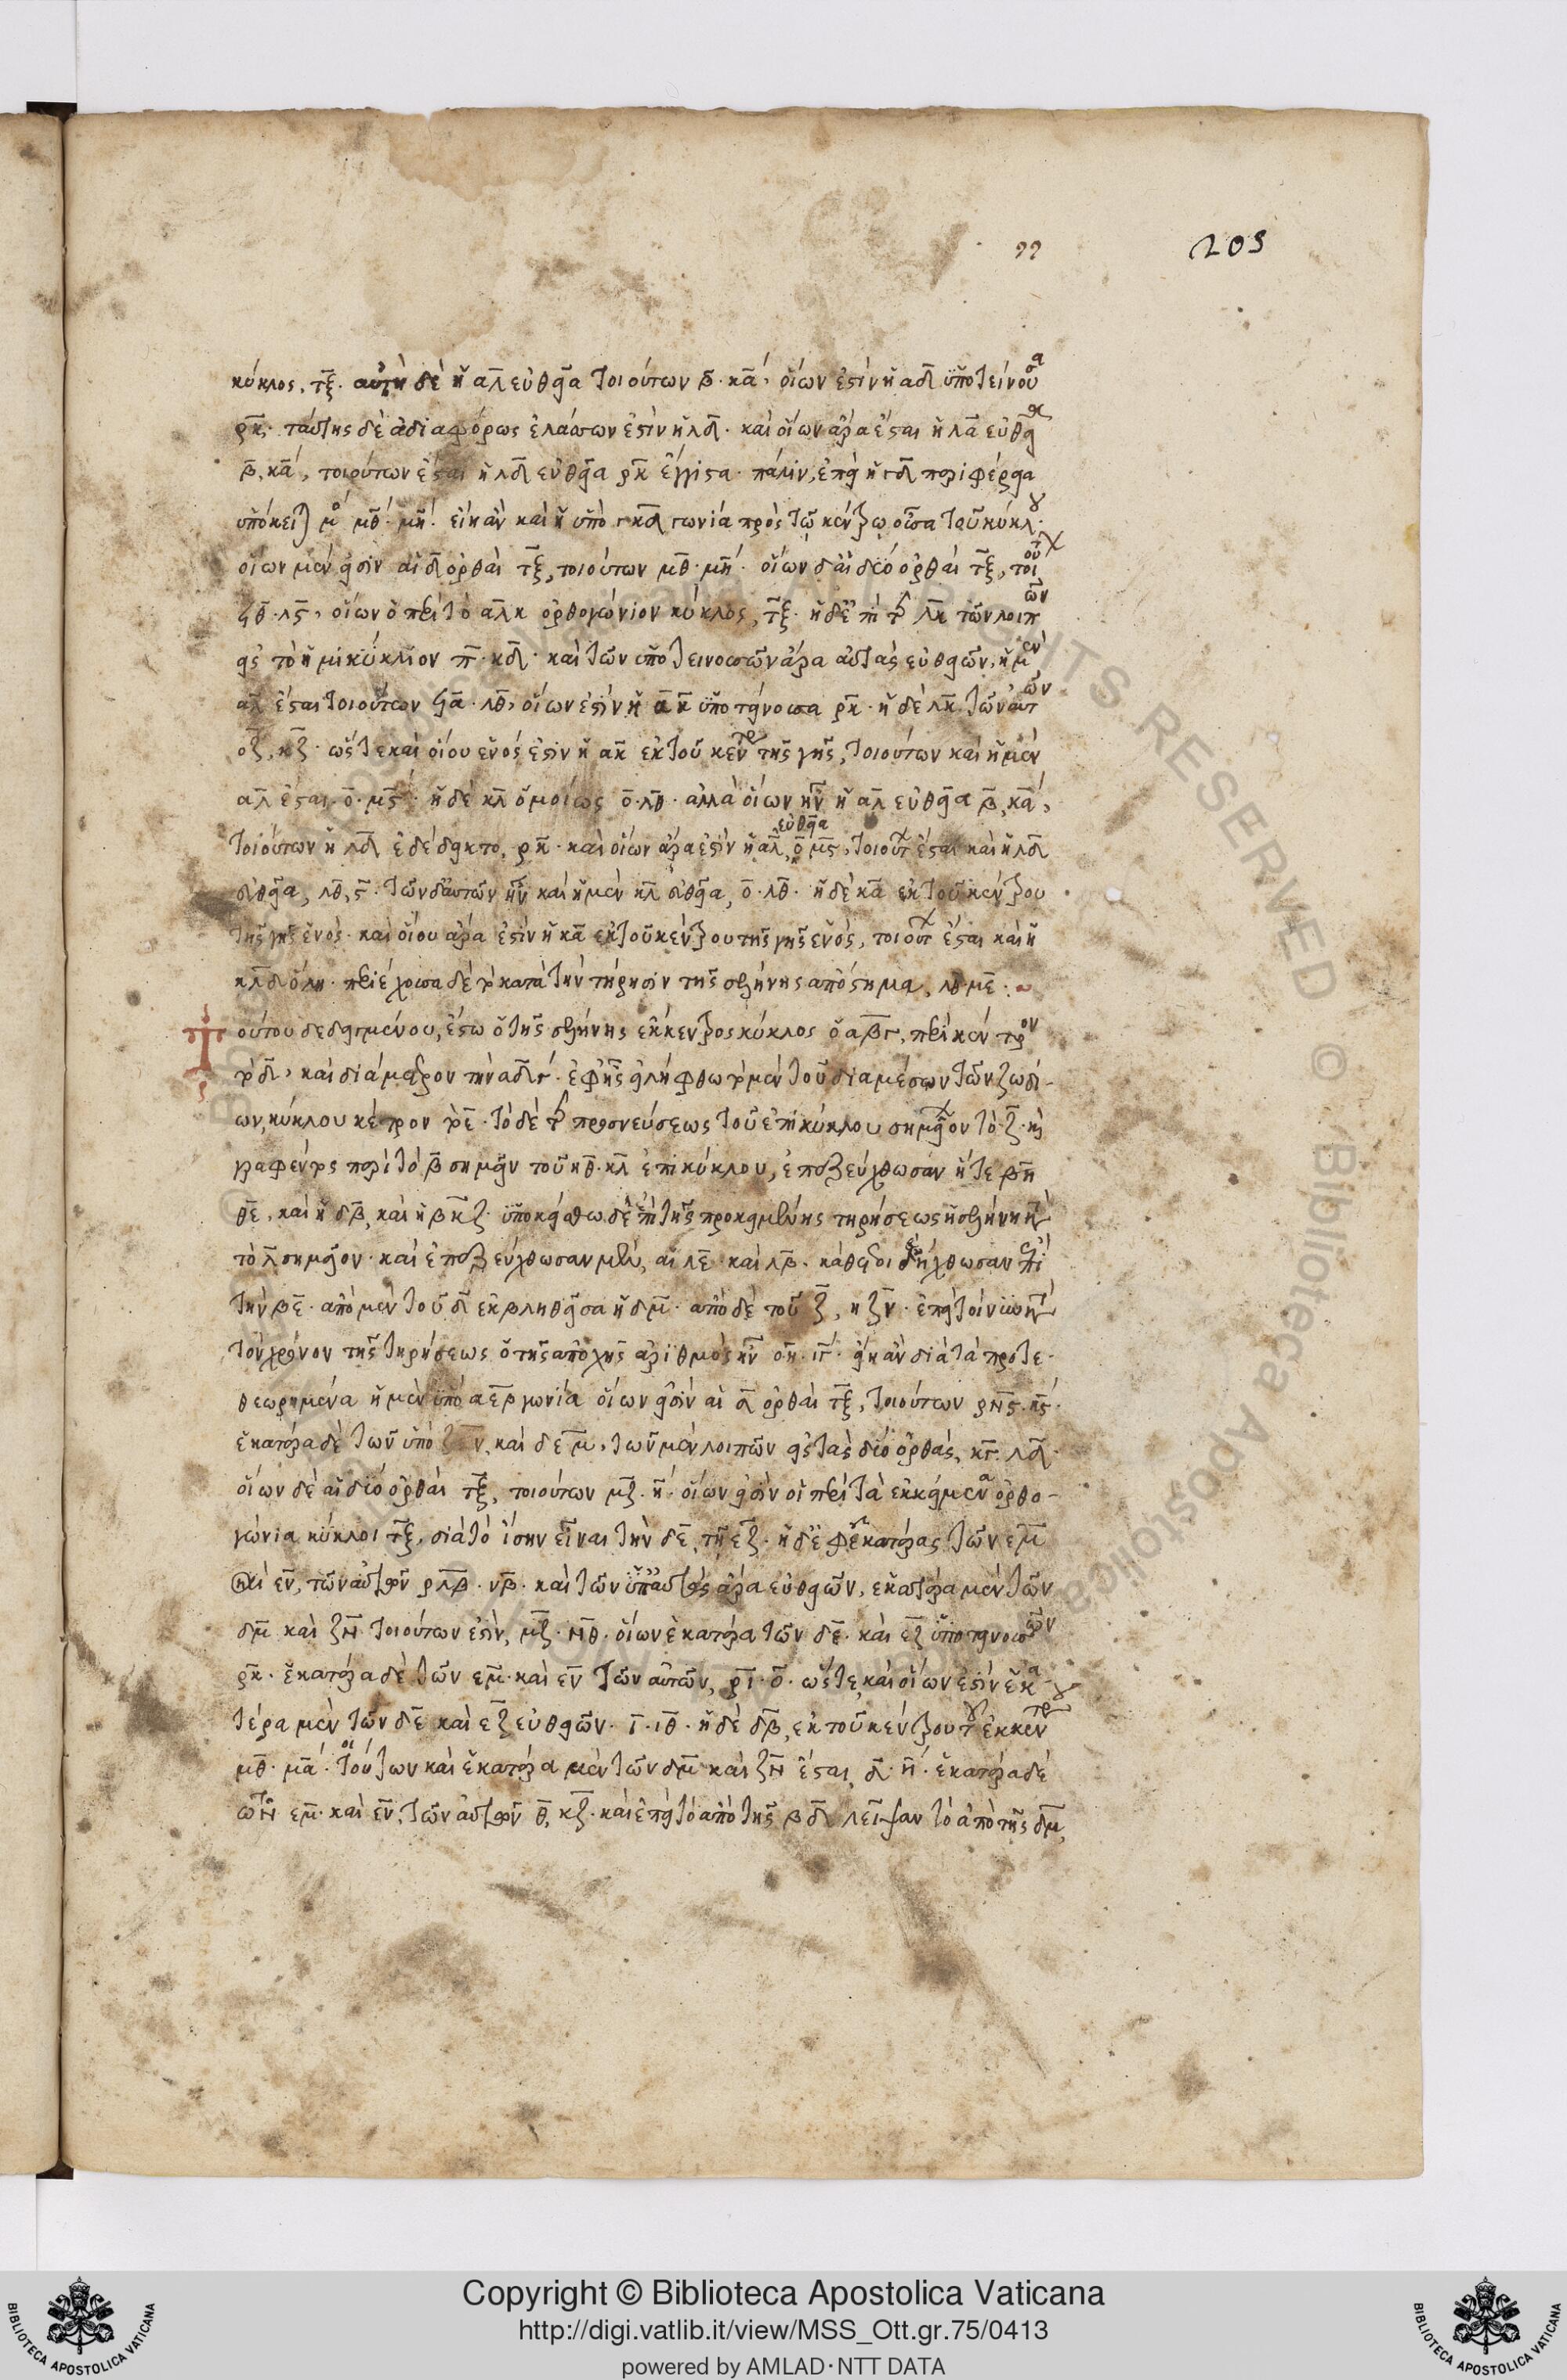 99
205
κύκλος, τξ. αὐτὴ δὲ ἡ αλ εὐθεῖα τοιούτων β. κα΄, οἵων ἐστὶν ἡ αδ ὑποτείνουσα
ρκ. ταύτης δὲ ἀδιαφόρως ἐλάσσων ἐστὶν ἡ λδ. καὶ οἵων ἄρα ἔσται ἡ λα εὐθεῖα
β, κα΄, τοιούτων ἔσται ἡ λδ εὐθεῖα ρκ ἔγγιστα. πάλιν, ἐπεὶ ἡ γδ περιφέρεια
ὑπόκειται μο μθ΄ μη΄. εἴη ἂν καὶ ἡ ὑπὸ γκδ γωνία πρὸς τῷ κέντρῳ οὖσα τοῦ κύκλου.
οἵων μέν εἰσιν αἱ δ ὀρθαὶ τξ, τοιούτων μθ. μη΄. οἵων δ αἱ δύο ὀρθαὶ τξ, τοιούτων
ϟθ. λς, οἵων ὁ περὶ τὸ αλκ ὀρθογώνιον κύκλος, τξ. ἡ δ ἐπὶ τῆς λκ τῶν λοιπῶν
εἰς τὸ ἡμικύκλιον π. κδ. καὶ τῶν ὑποτεινουσῶν ἄρα αὐτὰς εὐθειῶν, ἡ μὲν
αλ ἔσται τοιούτων ϟα. λθ, οἵων ἐστὶν ἡ ακ ὑποτείνουσα ρκ. ἡ δὲ λκ τῶν αὐτῶν
οζ, κζ. ὥστε καὶ οἵου ἑνός ἐστιν ἡ ακ ἐκ τοῦ κέντρου τῆς γῆς, τοιούτων καὶ ἡ μὲν
αλ ἔσται. ο. μς΄. ἡ δὲ κλ ὁμοίως ο. λθ. ἀλλὰ οἵων ἦν ἡ αλ εὐθεῖα β, κα΄,
τοιούτων ἡ λδ ἐδέδεικτο, ρκ. καὶ οἵων ἄρα ἐστὶν ἡ αλ εὐθεῖα, ο μς, τοιούτων ἔσται καὶ ἡ λδ
εὐθεῖα, λθ, ς. τῶν δ αὐτῶν ἦν καὶ ἡ μὲν κλ εὐθεῖα, ο. λθ. ἡ δὲ κα ἐκ τοῦ κέντρου
τῆς γῆς ἑνός. καὶ οἵου ἄρα ἐστὶν ἡ κα ἐκ τοῦ κέντρου τῆς γῆς ἑνός, τοιούτων ἔσται καὶ ἡ
κλδ ὅλη. περιέχουσα δὲ τὸ κατὰ τὴν τήρησιν τῆς σελήνης ἀπόστημα, λθ. με.
Τούτου δεδειγμένου, ἔστω ὁ τῆς σελήνης ἔκκεντρος κύκλος ὁ αβγ, περὶ κέντρον
τὸ δ, καὶ διάμετρον τὴν αδγ. ἐφ ἧς εἰλήφθω τὸ μὲν τοῦ διὰ μέσων τῶν ζωδί-
ων, κύκλου κέντρον τὸ ε. τὸ δὲ τῆς προσνεύσεως τοῦ ἐπικύκλου σημεῖον τὸ ζ. καὶ
γραφέντος περὶ τὸ β σημεῖον τοῦ ηθ. κλ ἐπικύκλου, ἐπεζεύχθωσαν ἥ τε βη
θε, καὶ ἡ δβ, καὶ ἡ βκζ. ὑποκείσθω δὲ ἐπὶ τῆς προκειμένης τηρήσεως ἡ σελήνη κατὰ
τὸ λ σημεῖον. καὶ ἐπεζεύχθωσαν μὲν, αἱ λε. καὶ λβ. κάθετοι δὲ ἤχθωσαν ἐπὶ
τὴν βε. ἀπὸ μὲν τοῦ δ ἐκβληθεῖσα ἡ δμ. ἀπὸ δὲ τοῦ ζ, ἡ ζν. ἐπεὶ τοίνυν κατὰ
τὸν χρόνον τῆς τηρήσεως ὁ τῆς ἀποχῆς ἀριθμὸς ἦν οη. ιγ. εἴη ἂν διὰ τὰ προτε-
θεωρημένα ἡ μὲν ὑπὸ αεβ γωνία οἵων εἰσὶν αἱ δ ὀρθαὶ τξ, τοιούτων ρνς. κς.
ἑκατέρα δὲ τῶν ὑπὸ ζεν, καὶ δεμ, τῶν μὲν λοιπῶν εἰς τὰς δύο ὀρθάς, κγ. λδ.
οἵων δὲ αἱ δύο ὀρθαὶ τξ, τοιούτων μζ. η΄. οἵων εἰσὶν οἱ περὶ τὰ ἐκκείμενα ὀρθο-
γώνια κύκλοι τξ, διὰ τὸ ἴσην εἶναι τὴν δε, τῇ εζ. ἡ δὲ ἐφ ἑκατέρας τῶν εμ
καὶ εν, τῶν αὐτῶν ρλβ. νβ. καὶ τῶν ὑπ αὐτὰς ἄρα εὐθειῶν, ἑκατέρα μὲν τῶν
δμ καὶ ζν τοιούτων ἐστὶν, μζ. νθ. οἵων ἑκατέρα τῶν δε. καὶ εζ ὑποτεινουσῶν
ρκ. ἑκατέρα δὲ τῶν εμ. καὶ εν τῶν αὐτῶν, ρι. ο. ὥστε, καὶ οἵων ἐστὶν ἑκα-
τέρα μὲν τῶν δε καὶ εζ εὐθειῶν. ι. ιθ. ἡ δὲ δβ, ἐκ τοῦ κέντρου τοῦ ἐκκέντρου
μθ. μα΄. τούτων καὶ ἑκατέρα μὲν τῶν δμ καὶ ζν ἔσται, δ. η΄. ἑκατέρα δὲ
τῶν εμ. καὶ εν, τῶν αὐτῶν θ, κζ. καὶ ἐπεὶ τὸ ἀπὸ τῆς βδ λεῖψαν τὸ ἀπὸ τῆς δμ,
BIBLIOTECA APOSTOLICA VATICANA
Copyright © Biblioteca Apostolica Vaticana
http://digi.vatlib.it/view/MSS_Ott.gr.75/0413
powered by AMLAD·NTT DATA
BIBLIOTECA APOSTOLICA VATICANA